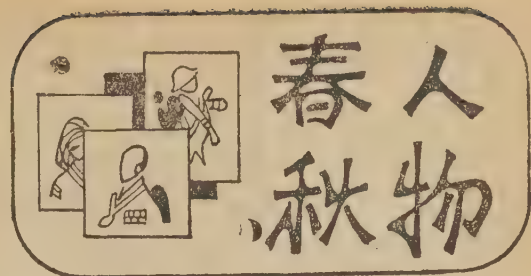 人物
春秋